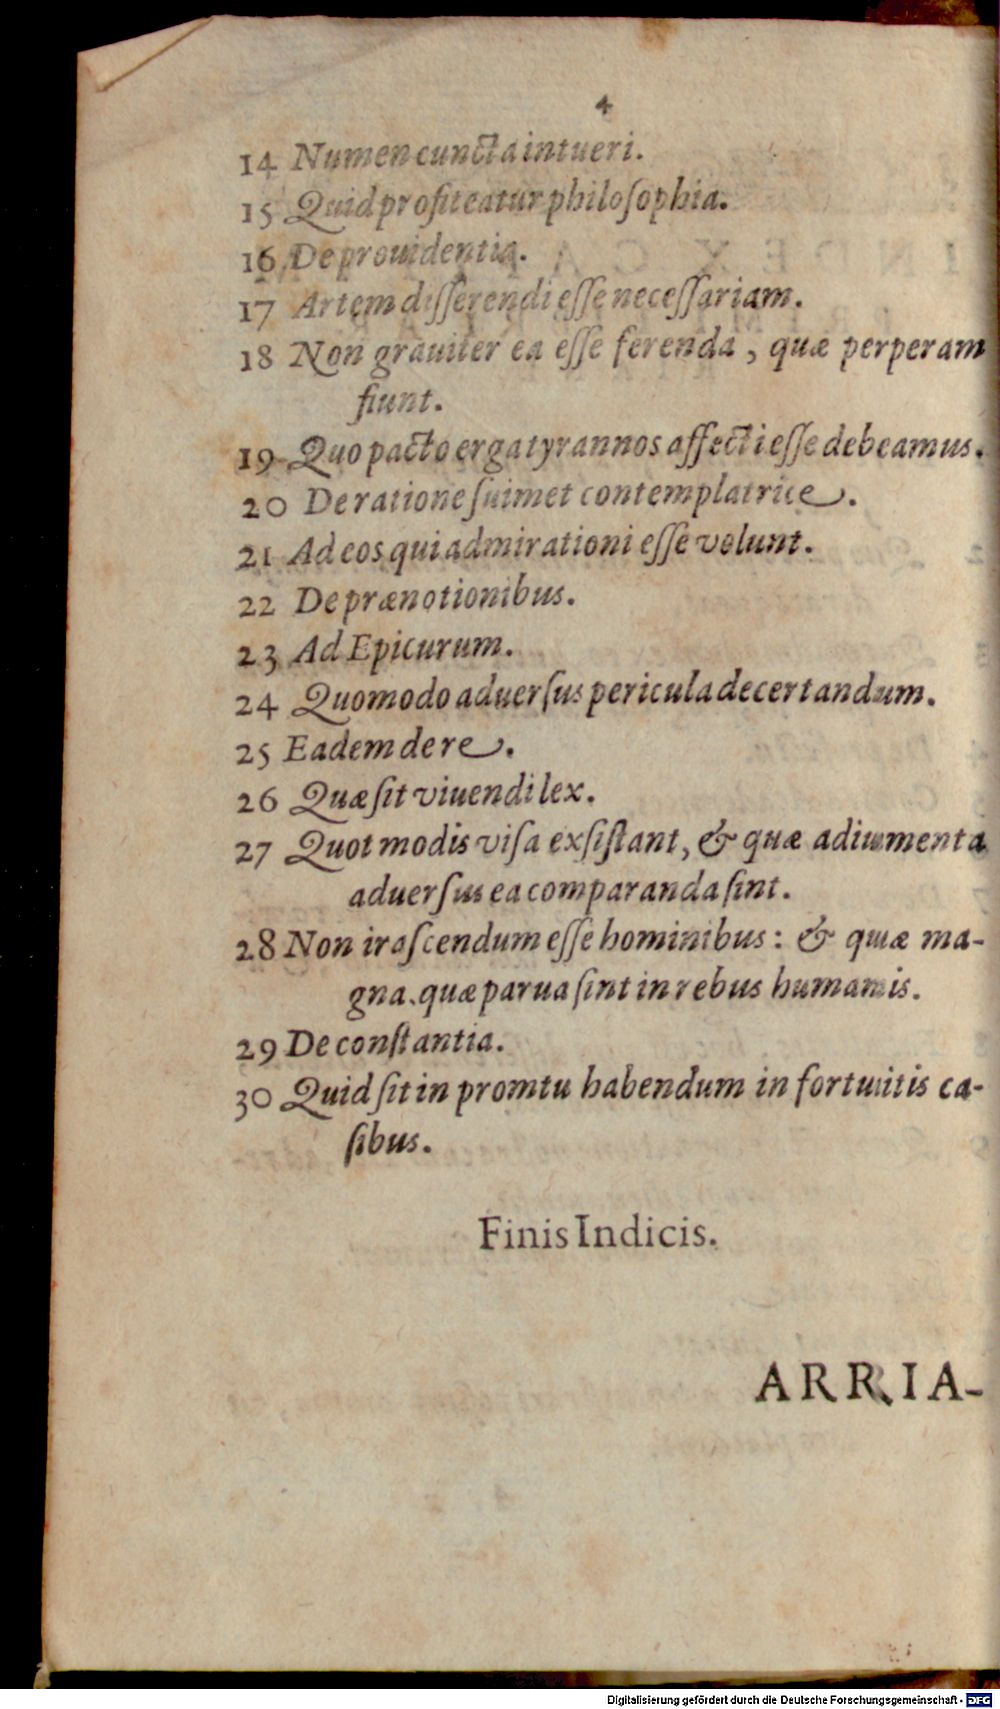 4
14 Numen cuncta intueri.
15 Quid profiteatur philoſophia.
16 De prouidentia.
17 Artem diſſerendi eſſe neceſſariam.
18 Non grauiter ea eſſe ferenda, quæ perperam
fiunt.
19 Quo pacto erga tyrannos affecti eſſe debeamus.
20 De ratione ſuimet contemplatrice.
21 Ad eos qui admirationi eſſe volunt.
22 De prænotionibus.
23 Ad Epicurum.
24 Quomodo aduerſus pericula decertandum.
25 Eadem de re.
26 Quæ ſit viuendi lex.
27 Quot modis viſa exſiſtant, & quæ adiumenta
aduerſus ea comparanda ſint.
28 Non iraſcendum eſſe hominibus: & quæ ma-
gna, quæ parua ſint in rebus humanis.
29 De conſtantia.
30 Quid ſit in promtu habendum in fortuitis ca-
ſibus.
Finis Indicis.
ARRIA-
Digitalisierung gefördert durch die Deutsche Forschungsgemeinschaft - DFG